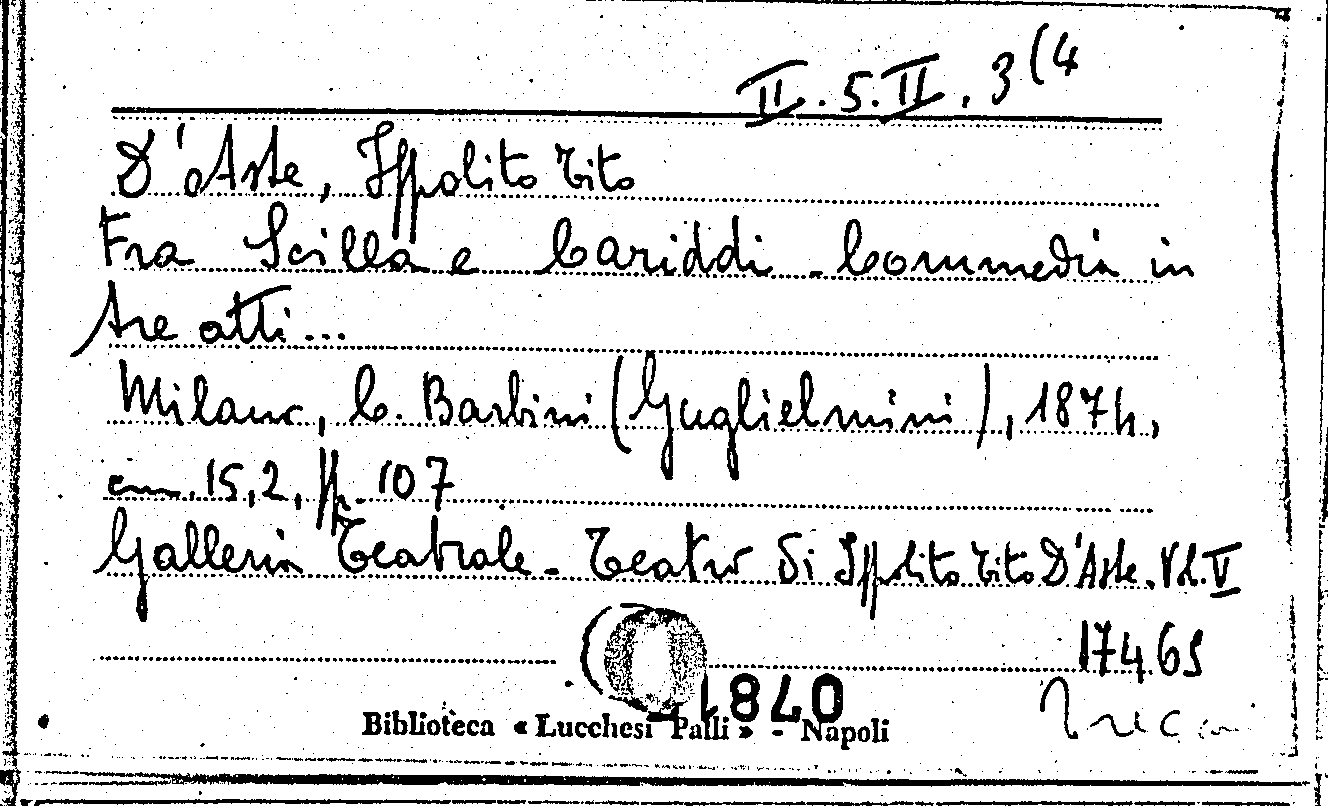 II.5.II.3(4
D'Aste, Ippolito Tito
Fra Scilla e Cariddi - Commedia in
tre atti...
Milano, C. Barbini (Guglielmini), 1874,
cm. 15,2, pp. 107
Galleria Teatrale - Teatro di Ippolito Tito D'Aste. Vol. V
17465
Biblioteca « Lucchesi Palli » - Napoli